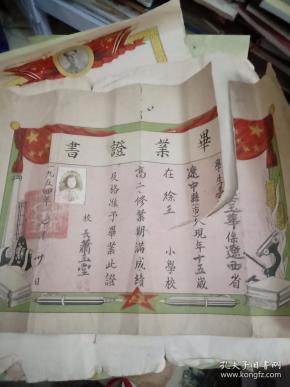 畢業證書
學生
係遼西省
遼中縣市人現年十五歲
在 小學校
高二修業期滿成績
及格准予畢業此證
校長蕭玉堂
一九五四年
日
孔夫子旧书网